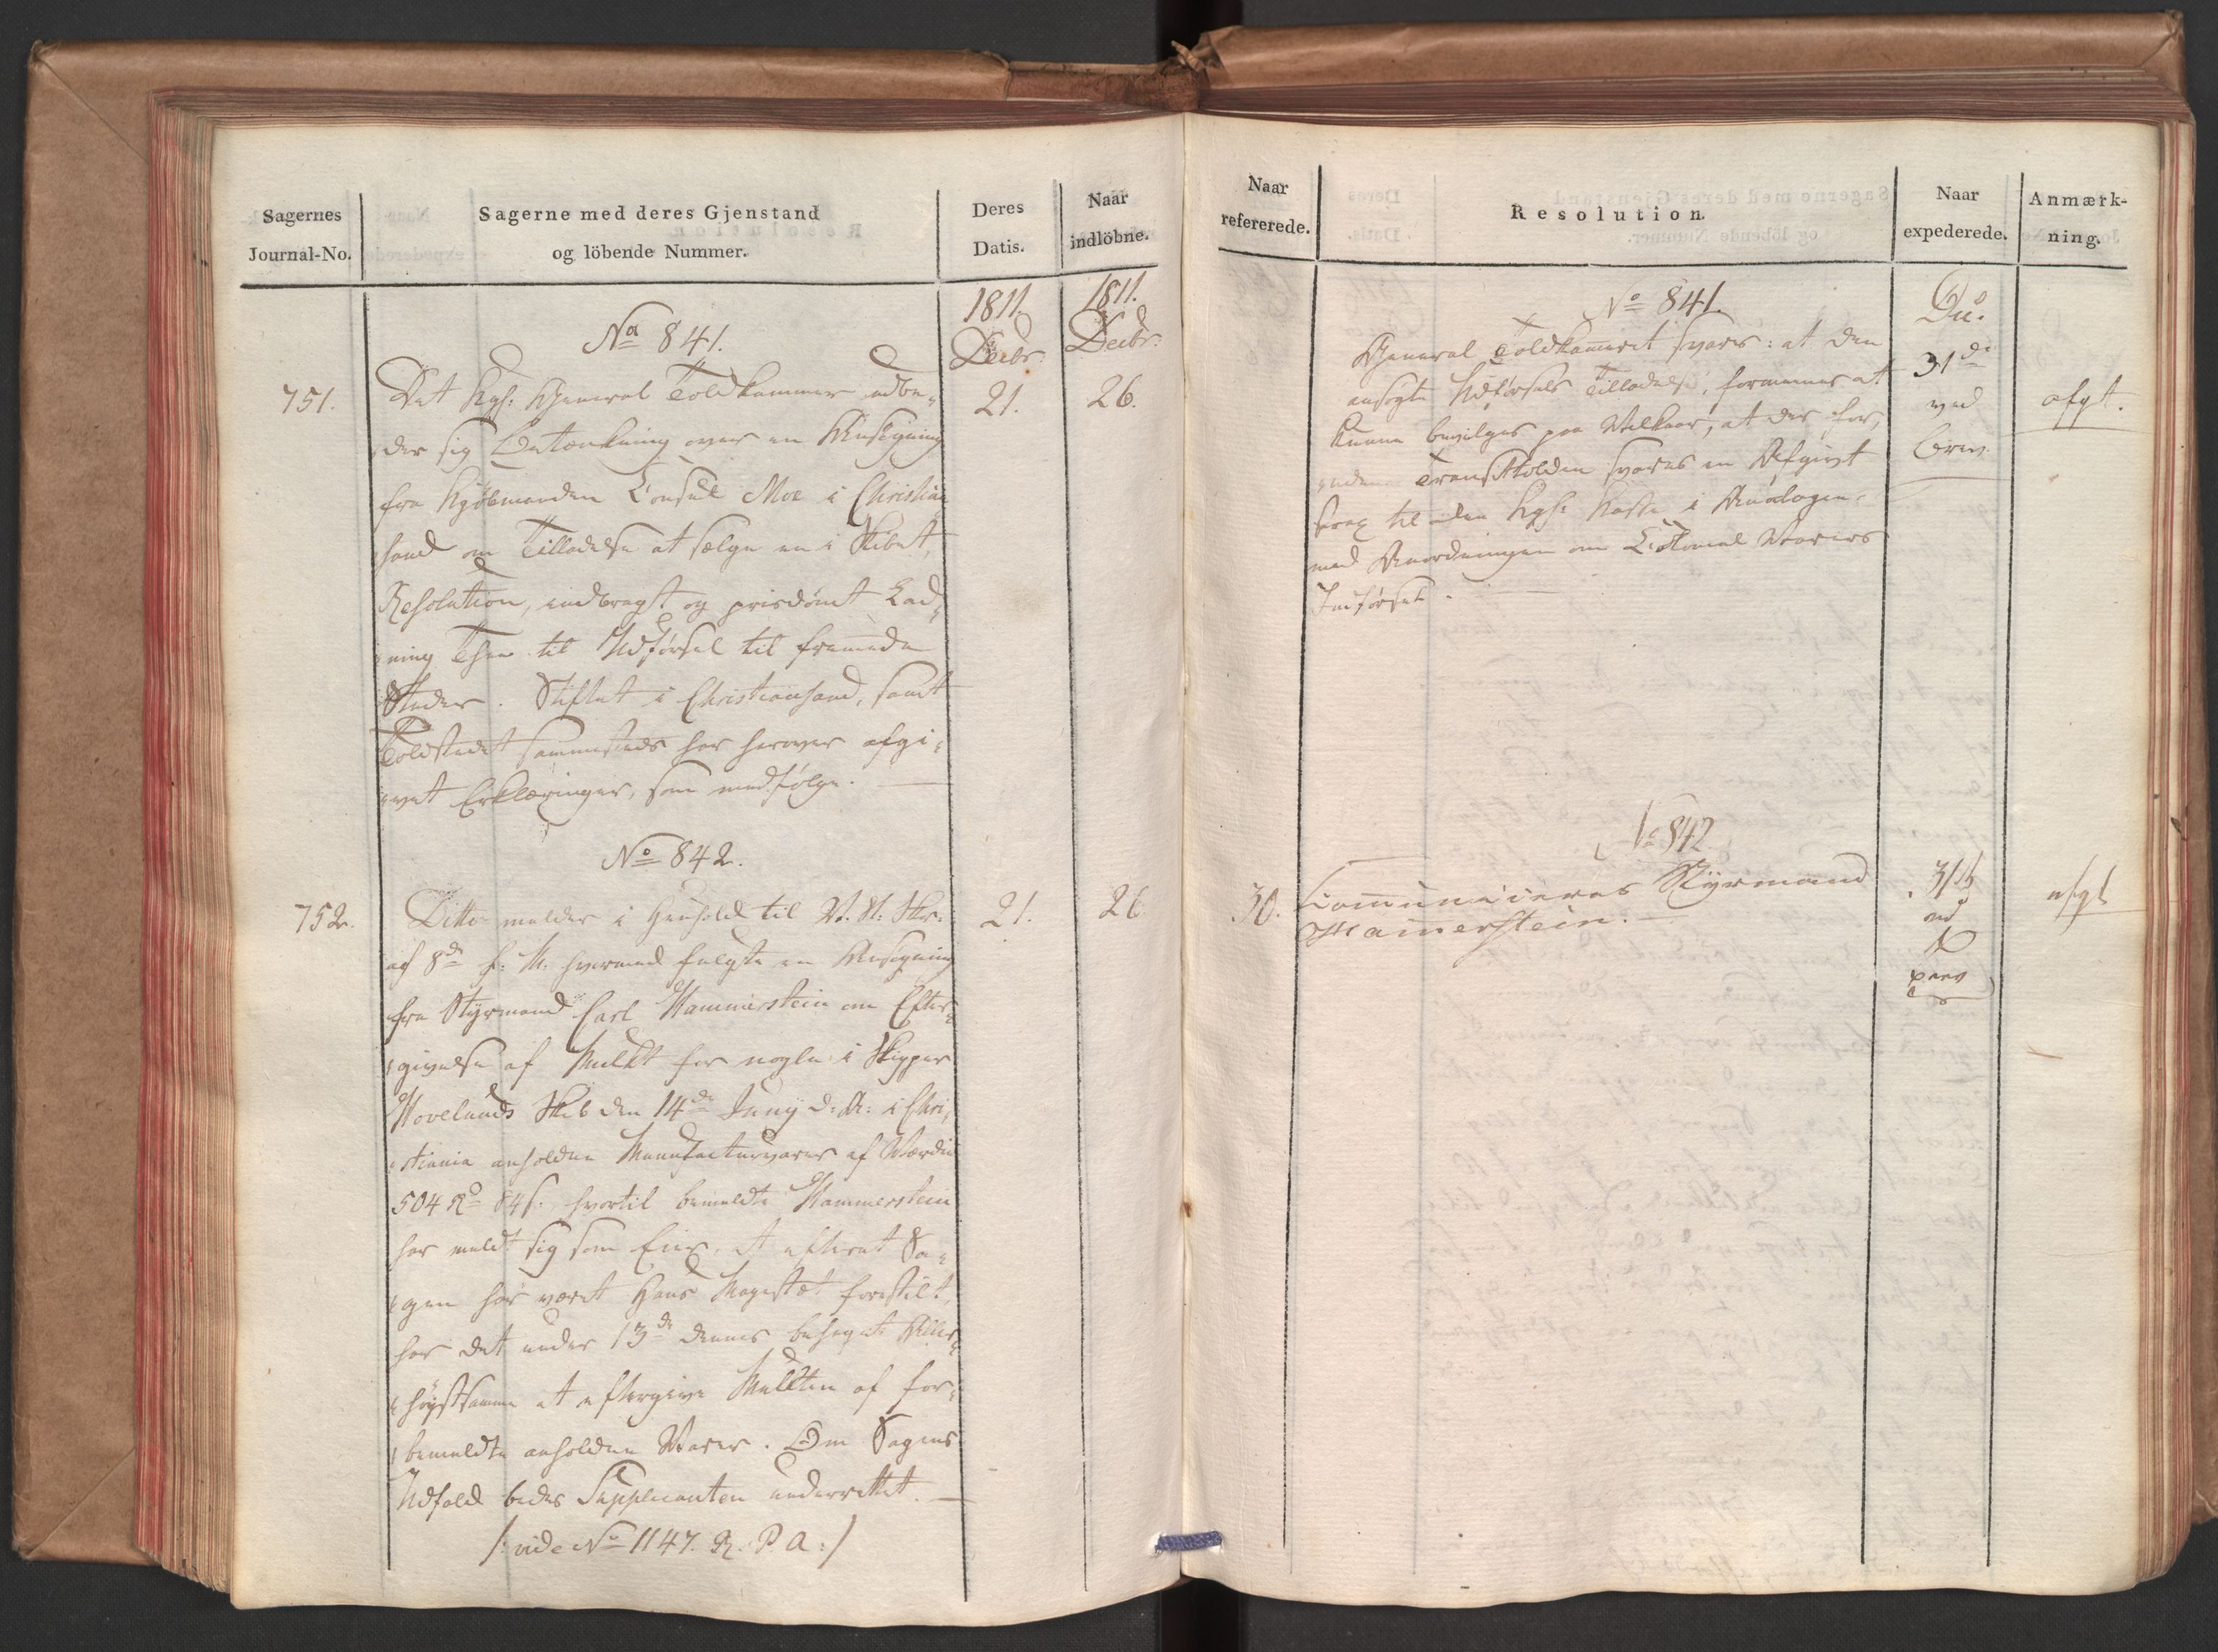 Sagernes
Journal-No.
Sagerne med deres Gjenstand
og löbende Nummer.
Deres
Datis.
Naar
indlöbne.
1811.
Decbr:
1811.
Decbr:
No 841.
751.
21.
26.
Det kgl: General Toldkammer udbe-
der sig Betænkning over en Ansøgning
fra Kjøbmanden Consul Moe i Christian
sand om Tilladelse at sælge en i Skibet,
Resolution, indbragt og prisdømt Lad-
ning Thee til Udførsel til fremmede
Steder. Stiftet i Christiansand, samt
Toldstedet sammesteds har herover afgi-
vet Erklæringer, som medfølge.
No 842.
752.
21.
26
Ditto melder i Henhold til
af 8de f: M: hvormed fulgte en Ansøgning
fra Styrmand Carl Hammerstein om Efter-
givelse af Mulkt for nogle i Skipper
Hovelunds Skib den 14de Juny d: A: i Chri-
stiania anholdne Manufacturvarer af Værdie
504 Rd 84 s. hvortil bemeldte Hammerstein
har meldt sig som Eier, at efterat Sa-
gen har været Hans Majestæt forestilt,
har det under 13de dennes behaget Aller-
høystsamme at eftergive Mulkten af for-
bemeldte anholdne Varer. Om Sagens
Udfald bedes Supplicanten underrettet.
/: vide No 1147. R. P. A :/
Naar
refererede.
Resolution.
Naar
expederede.
Anmærk-
ning.
No 841.
General Toldkameret svares: at den
ansøgte Udførsels Tilladelse, formenes at
kunne bevilges paa Vilkaar, at der for,
uden Transittolden svares en Afgivt
strax til den kgl: Kasse i Analogie
med Anordningen om Colonial Varers
Indførsel.
31de
ved
Brev.
afgt.
No 842
30.
Communiceres Styrmand
Hamerstein.
31te
afgt